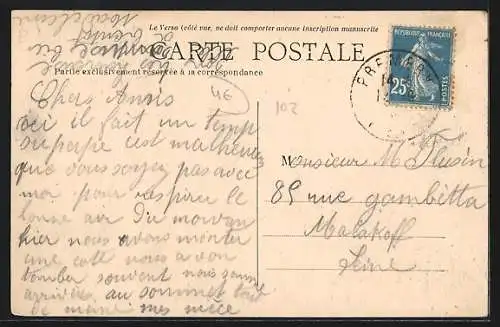 Le Verso (côté vue, ne doit comporter aucune inscription manuscrite
CARTE POSTALE
Partie exclusivement réservée à la correspondance
4E
102
RÉPUBLIQUE FRANÇAISE
25c
POSTES
Chers Amis
ici il fait un temps
superbe c'est malheureux
que vous soyez pas avec
moi pour respirer le
bonne air du morvan
hier nous avons monter
une cote nous avon
tomber souvent nous
arrivés au sommet tout
de meme mes
M
Monsieur M
85 rue gambetta
Malakoff
Seine